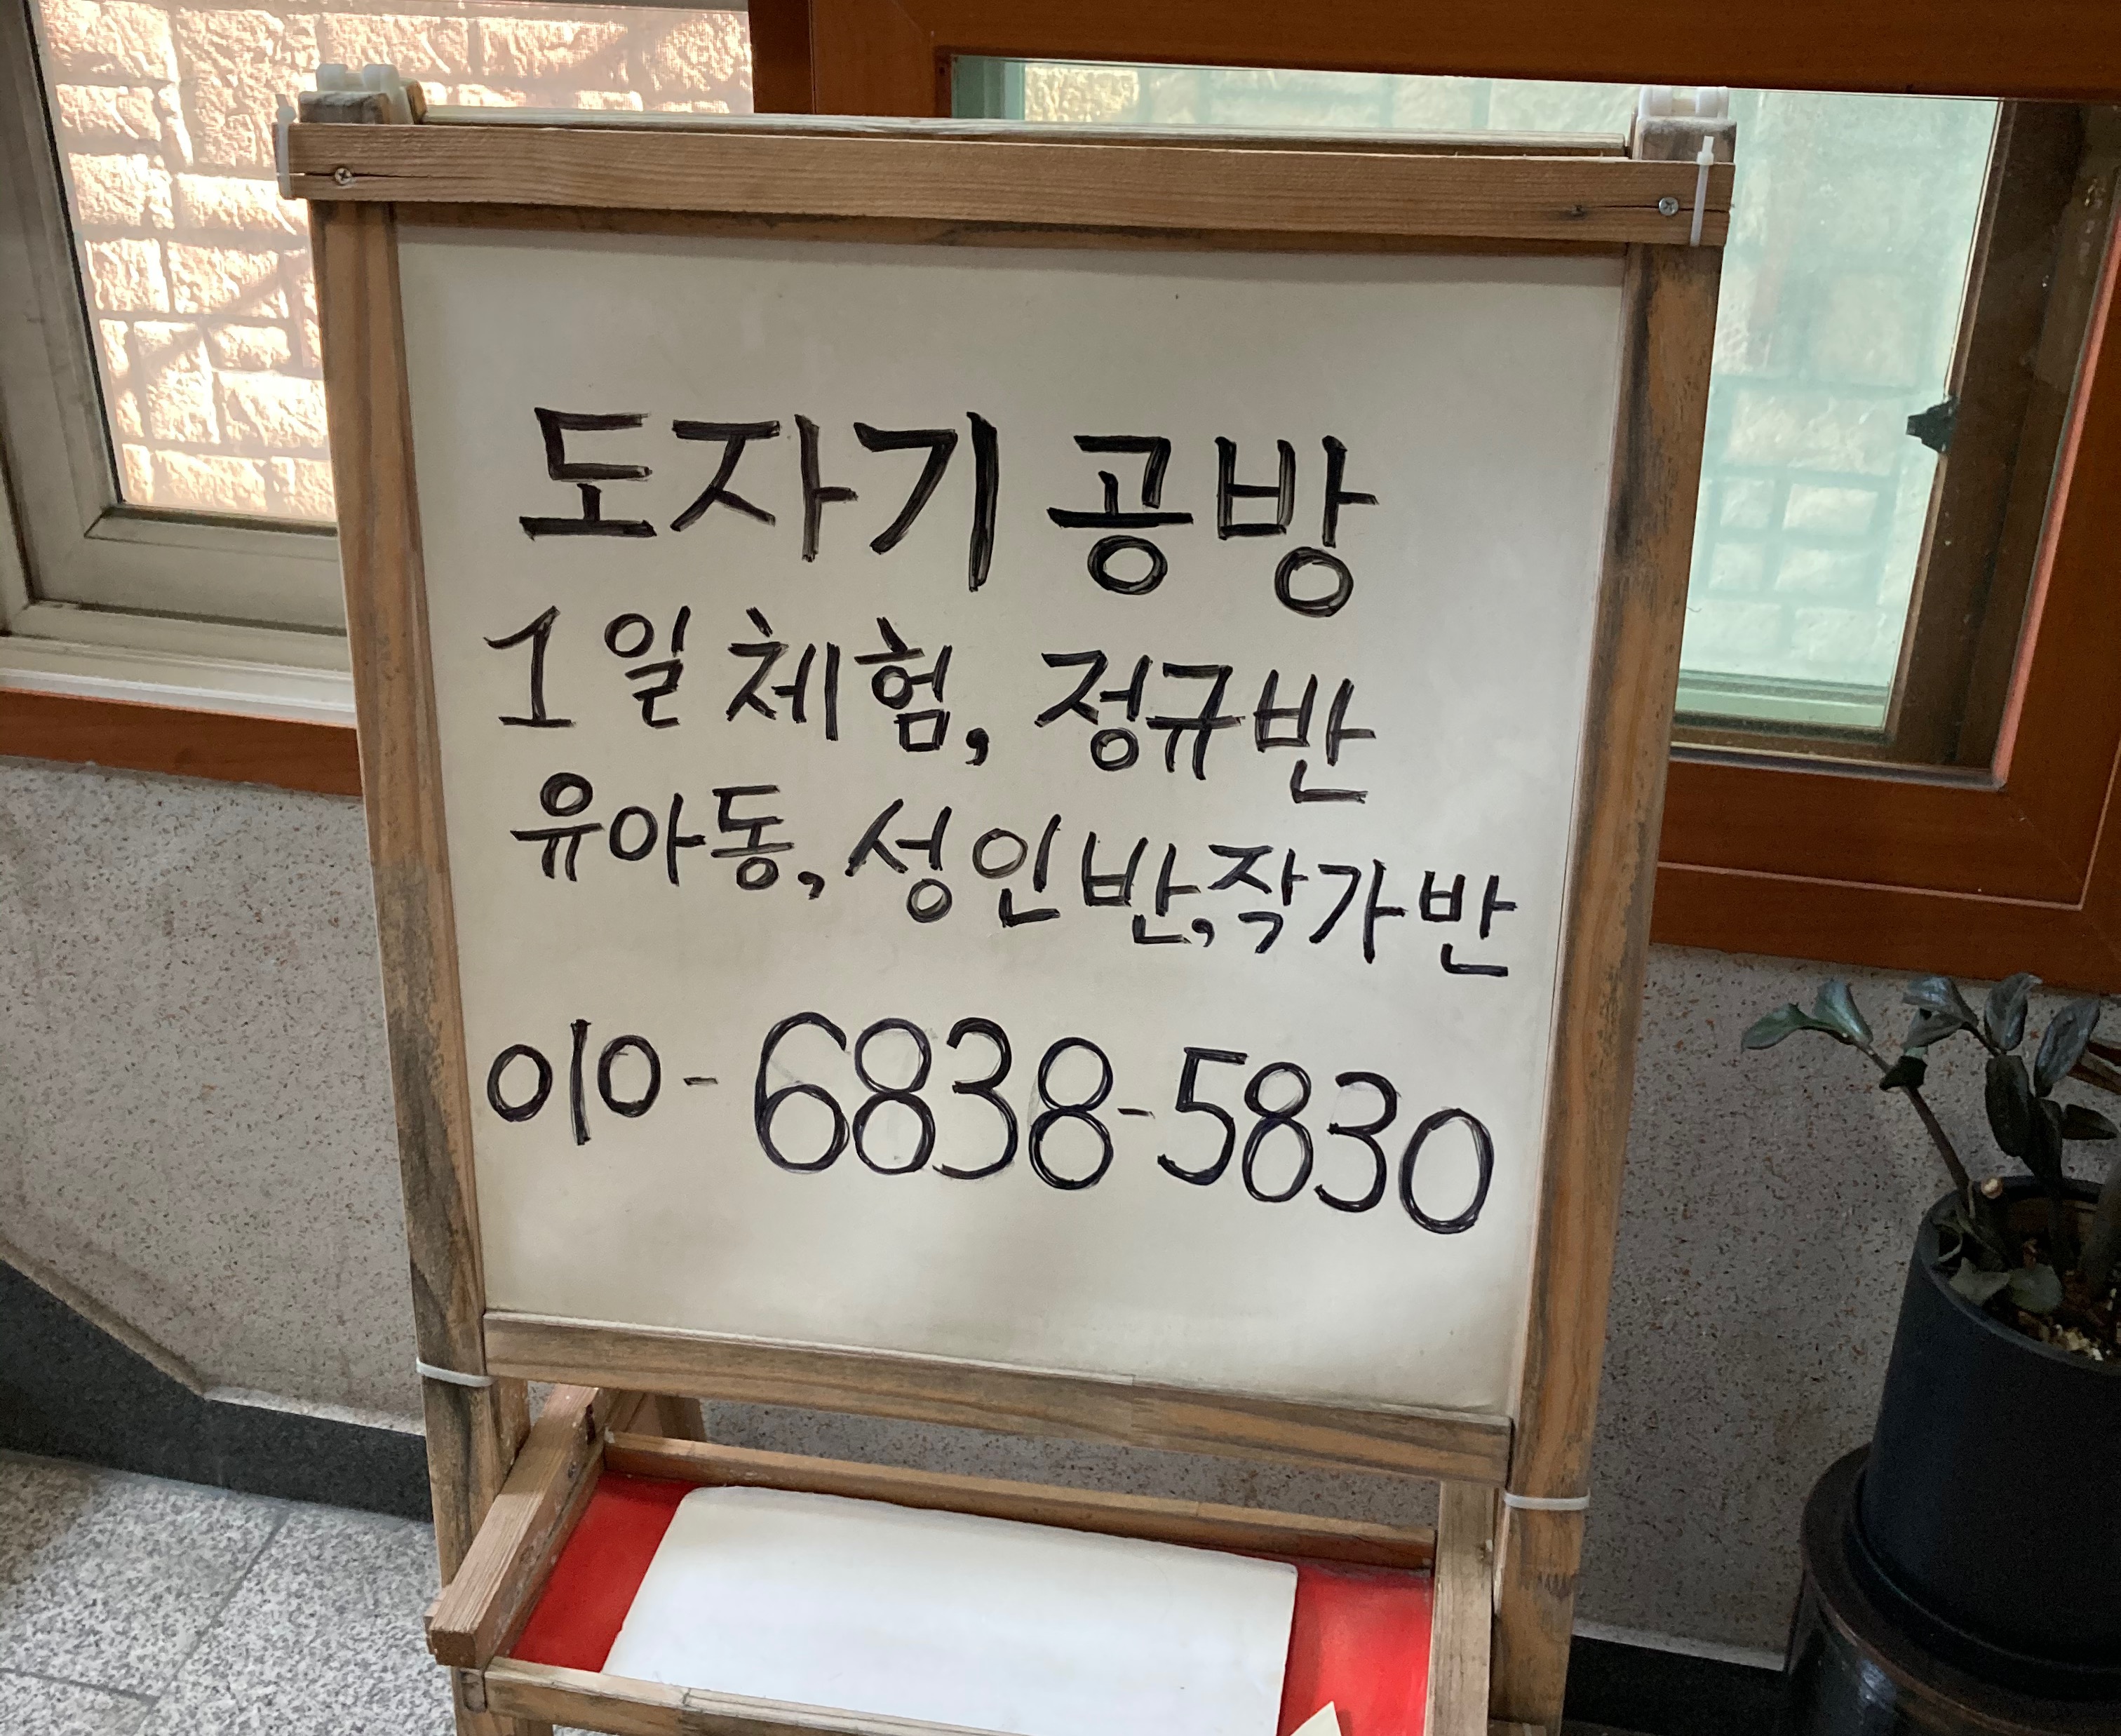 도자기 공방
1일 체험, 정규반
유아동, 성인반, 작가반
010-6838-5830